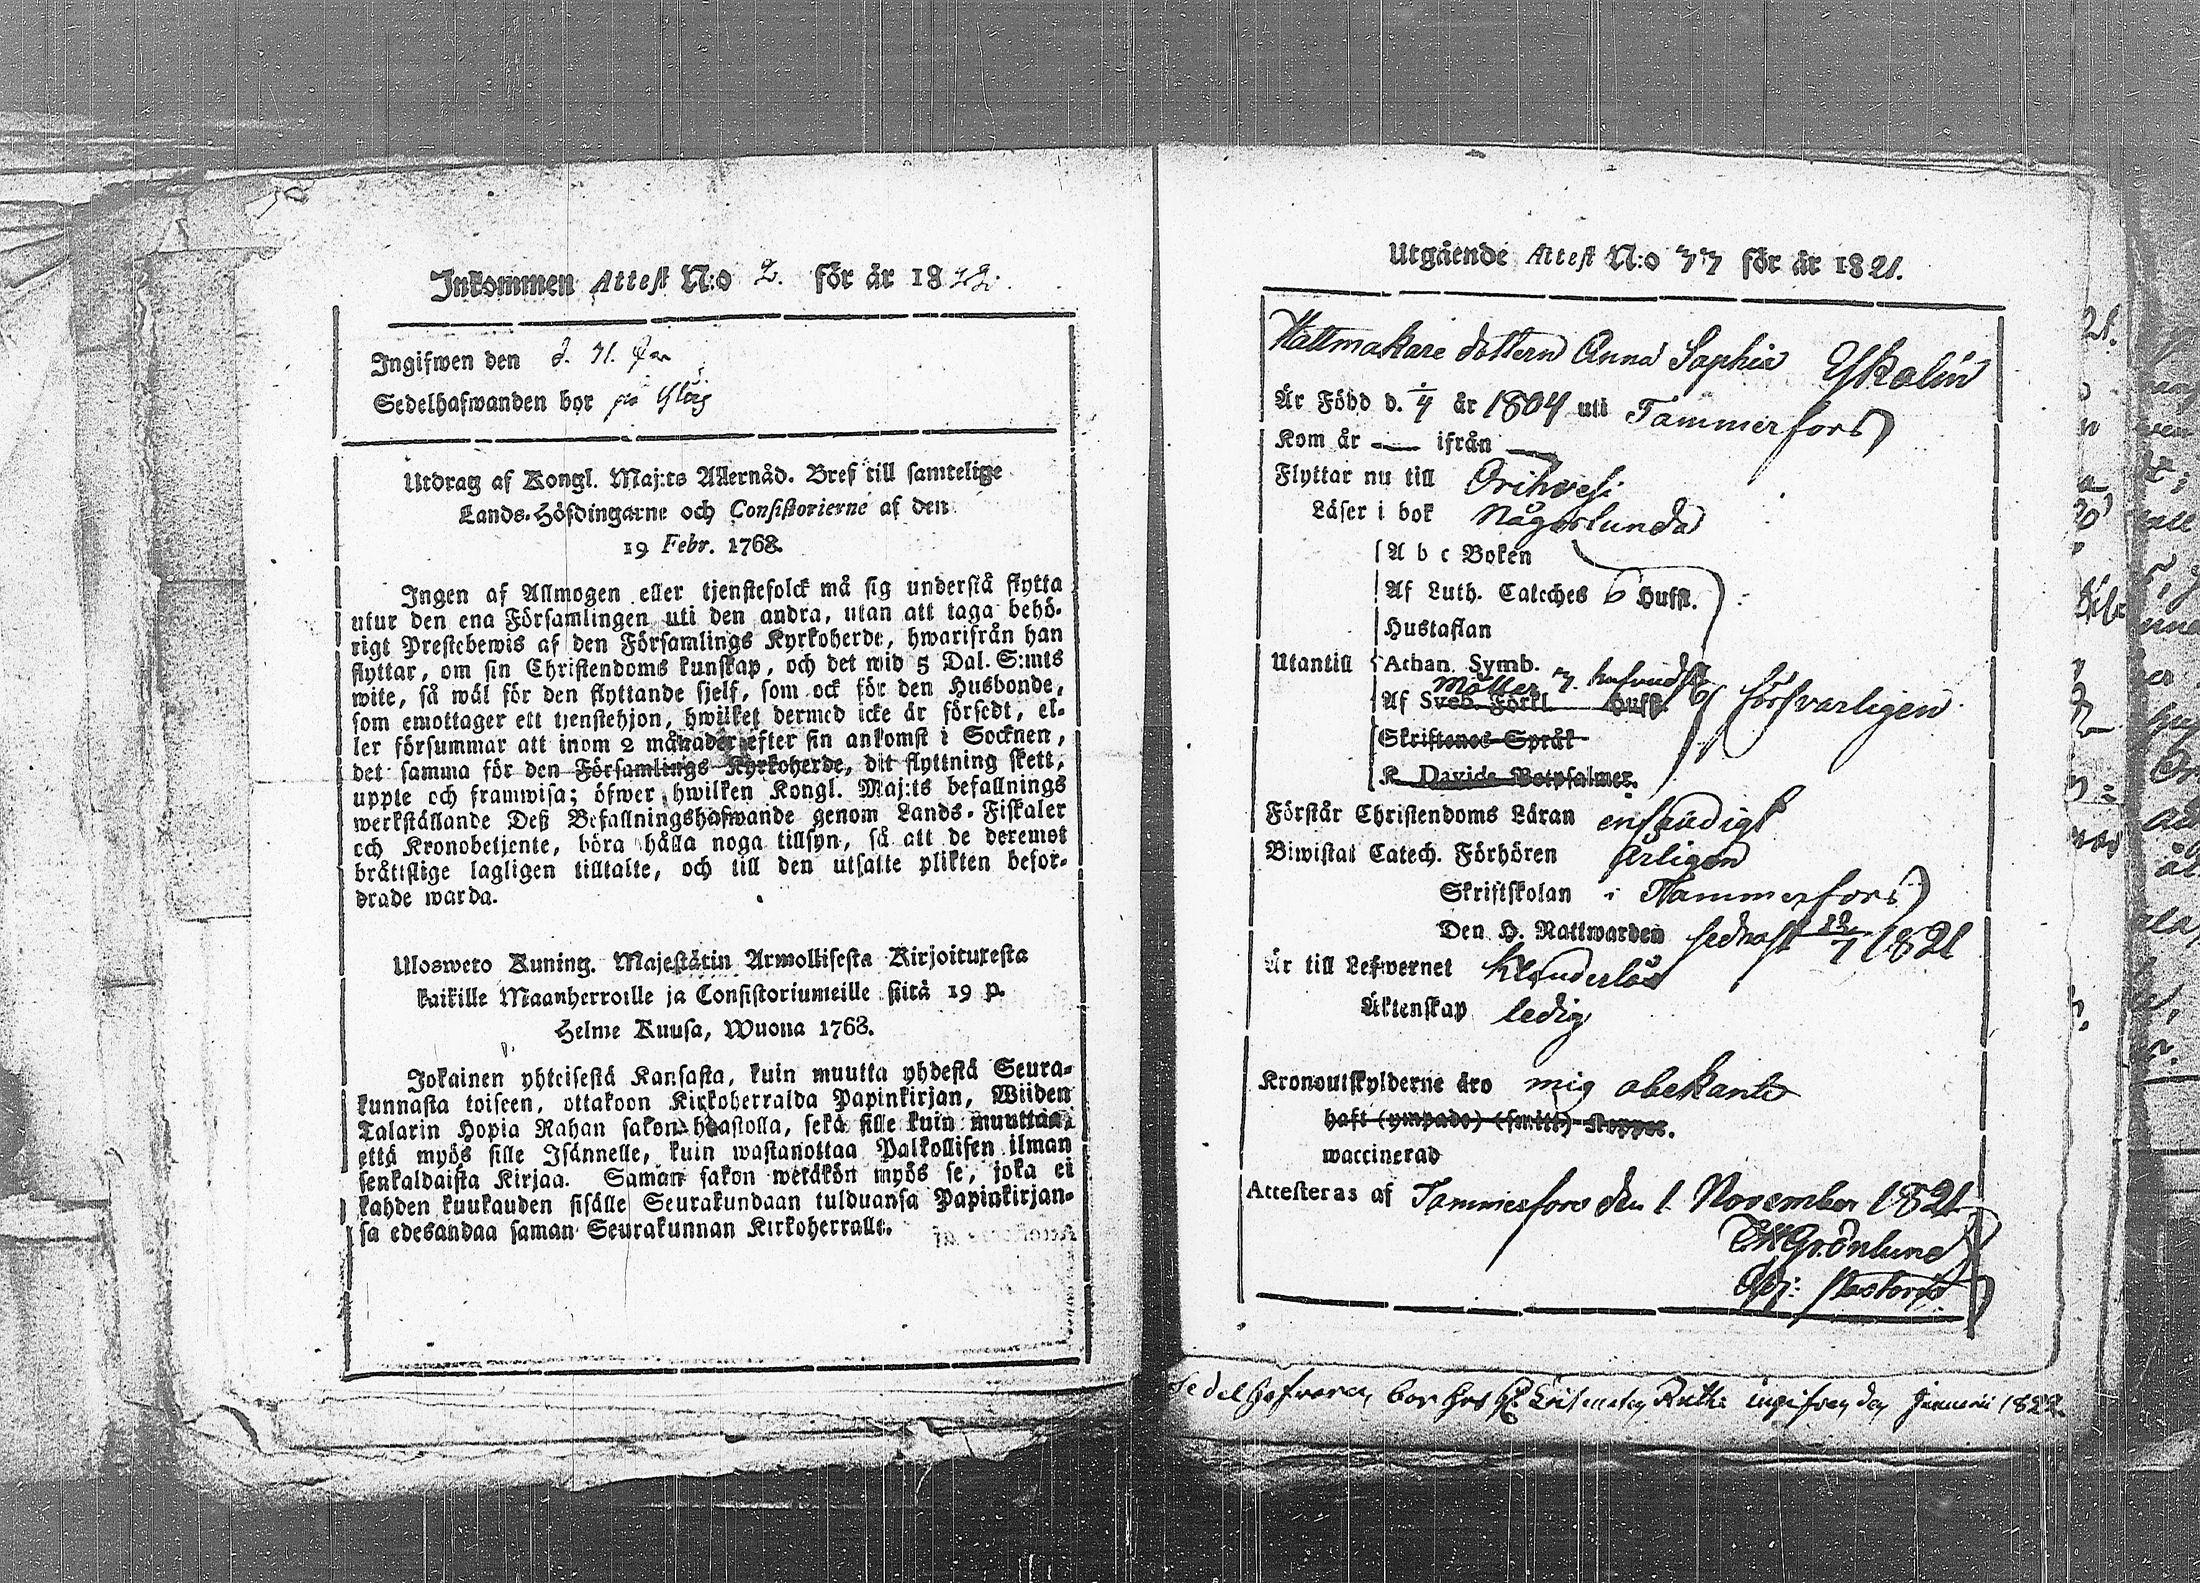 Inkommen Attest N:o 2. för år 1822.
Ingifwen den d. 31. Jan
Sedelhafwanden bor på
Utdrag af Kongl. Maj:ts Allernåd. Bref till samtelige
Lands-Höfdingarne och Consistorierne af den
19 Febr. 1768.
Ingen af Allmogen eller tjenstefolck må sig understå flytta
utur den ena Församlingen uti den andra, utan att taga behö-
rigt Prestebewis af den Församlings Kyrkoherde, hwarifrån han
flyttar, om sin Christendoms kunskap, och det wid 5 Dal. S:mts
wite, så wäl för den flyttande sjelf, som ock för den Husbonde,
som emottager ett tjenstehjon, hwilket dermed icke är försedt, el-
ler försummar att inom 2 månader efter sin ankomst i Socknen,
det samma för den Församlings Kyrkoherde, dit flyttning skett,
uppte och framwisa; öfwer hwilken Kongl. Maj:ts befallnings
werkställande Deß Befallningshafwande genom Lands-Fiskaler
och Kronobetjente, böra hålla noga tillsyn, så att de deremot
bråttslige lagligen tilltalte, och till den utsatte plikten befor-
drade warda.
Ulosweto Kuning. Majestätin Armollisesta Kirjoituxesta
kaikille Maanherroille ja Consistoriumeille siitä 19 p.
Helme Kuusa, Wuona 1768.
Jokainen yhteisestä Kansasta, kuin muutta yhdestä Seura-
kunnasta toiseen, ottakoon Kirkoherralda Papinkirjan, Wiiden
Talarin Hopia Rahan sakon haastolla, sekä sille kuin muuttaa,
että myös sille Isännelle, kuin wastanottaa Palkollisen ilman
senkaldaista Kirjaa. Saman sakon wetäkön myös se, joka ei
kahden kuukauden sisälle Seurakundaan tulduansa Papinkirjan-
sa edesandaa saman Seurakunnan Kirkoherralle.
Utgående Attest N:o 77 för år 1821.
Hattmakare dottern Anna Sophia Yskolin
Är Född d. 1/4 år 1804 uti Tammerfors
Kom år — ifrån —
Flyttar nu till Orihvesi
Läser i bok Någorlunda
A b c Boken
Af Luth. Catches 6 Hufst.
Hustaflan
Utantill Athan. Symb.
Möller 7. hufvudst
Af Sveb. Förkl. Hufst. försvarligen
Skriftenes Språk
K. Davids Botpsalmer.
Förstår Christendoms Läran enfaldigt
Biwistat Catech. Förhören årligen
Skriftskolan i Tammerfors
Den H. Nattwarden sednast 12/7 1821
Är till Lefwernet klanderlös
Äktenskap ledig
Kronoutskylderne äro mig obekanta
haft (ympade) (smitt) Koppor.
waccinerad
Attesteras af Tammerfors den 1 November 1821
Grönlund
Adj: Pastoris
Sedelhafvaren bor hos ingifven den Januarii 1822